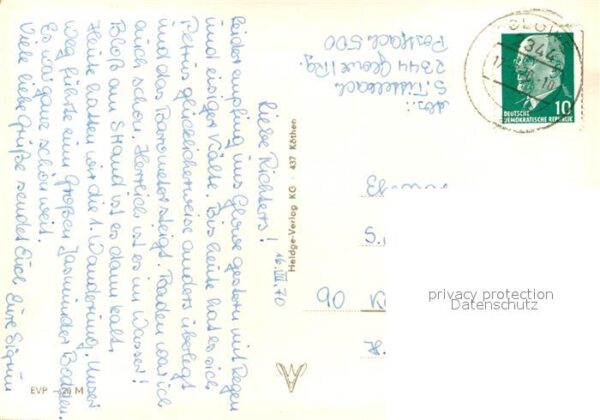 Liebe Richters!
16.VII.70
Leider empfing uns Glowe gestern mit Regen
und eisiger Kälte. Bis heute hat es sich
Petrus glücklicherweise anders überlegt
und das Barometer steigt. Baden war ich
auch schon. Herrlich ist es im Wasser!
Bloß am Strand ist es dann kalt.
Heute hatten wir die 1. Wanderung. Unser
Weg führte zum Großen Jasmunder Bodden.
Es war ganz schön weit.
Viele liebe Grüße sendet Euch Eure Sigrun
EVP - 20 M
Heldge-Verlag KG 437 Köthen
Abs.:
S.
2344 Glowe/Rg.
Postfach 500
GLOWE
2344
10
DEUTSCHE
DEMOKRATISCHE REPUBLIK
S.
Ob
privacy protection
Datenschutz